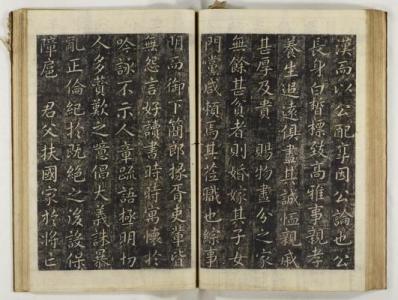 漢而以公配享因公論也公
長身白晳標致高雅事親孝
養生追遠俱盡其誠恤親戚
甚厚及貴 賜物盡分之家
無餘其貧者則婚嫁其子女
門黨咸頼焉其莅職也綜事
明而御下簡郎掾胥吏輩皆
無怨言好讀書時時寓懷於
吟詠不示人章疏語極明切
人多賛歎之噫倡大義誅暴
亂正倫紀扵旣絶之後設保
障扈 君父扶國家於將亡